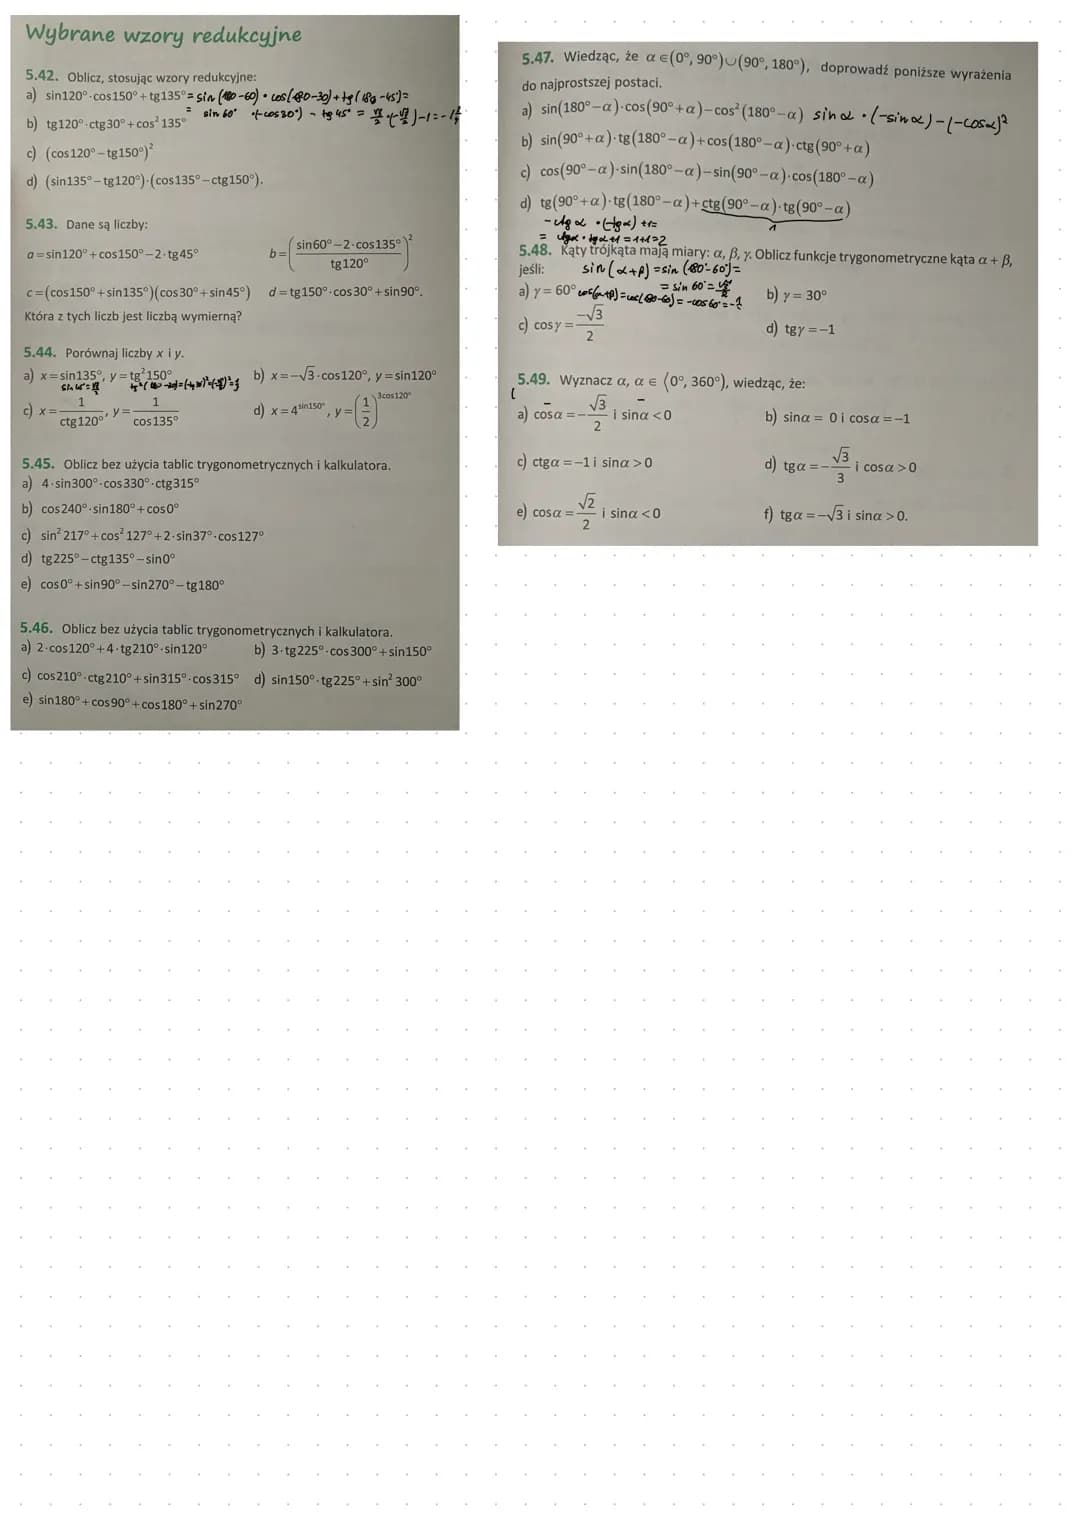 Wybrane wzory redukcyjne
5.42. Oblicz, stosując wzory redukcyjne:
a) sin120°·cos150°+tg135° = sin (180-60) · cos(180-30) + tg (180-45°) =
= sin 60° · (-cos30°) - tg 45° = √3/2 · (-√3/2) - 1 = -1 3/4
b) tg120°·ctg30°+cos²135°
c) (cos120°−tg150°)²
d) (sin135°−tg120°)·(cos135°−ctg150°).
5.43. Dane są liczby:
a=sin120°+cos150°−2·tg45° b=((sin60°−2·cos135°)/tg120°)²
c=(cos150°+sin135°)(cos30°+sin45°) d=tg150°·cos30°+sin90°.
Która z tych liczb jest liczbą wymierną?
5.44. Porównaj liczby x i y.
a) x=sin135°, y=tg²150° b) x=−√3·cos120°, y=sin120°
c) x=1/ctg120°, y=1/cos135° d) x=4^sin150°, y=(1/2)^3cos120°
5.45. Oblicz bez użycia tablic trygonometrycznych i kalkulatora.
a) 4·sin300°·cos330°·ctg315°
b) cos240°·sin180°+cos0°
c) sin²217°+cos²127°+2·sin37°·cos127°
d) tg225°−ctg135°−sin0°
e) cos0°+sin90°−sin270°−tg180°
5.46. Oblicz bez użycia tablic trygonometrycznych i kalkulatora.
a) 2·cos120°+4·tg210°·sin120° b) 3·tg225°·cos300°+sin150°
c) cos210°·ctg210°+sin315°·cos315° d) sin150°·tg225°+sin²300°
e) sin180°+cos90°+cos180°+sin270°
5.47. Wiedząc, że α∈(0°, 90°)∪(90°, 180°), doprowadź poniższe wyrażenia
do najprostszej postaci.
a) sin(180°−α)·cos(90°+α)−cos²(180°−α) sin α · (-sin α) - (-cos α)²
b) sin(90°+α)·tg(180°−α)+cos(180°−α)·ctg(90°+α)
c) cos(90°−α)·sin(180°−α)−sin(90°−α)·cos(180°−α)
d) tg(90°+α)·tg(180°−α)+ctg(90°−α)·tg(90°−α)
-ctg α · (-tg α) +1=
1
= ctg α · tg α +1 = 1+1=2
5.48. Kąty trójkąta mają miary: α, β, γ. Oblicz funkcje trygonometryczne kąta α + β,
jeśli: sin (α+β) = sin (180°-60°) =
= sin 60° = √3/2
a) γ = 60° cos(α+β) = cos(180-60) = -cos60° = -1/2 b) γ = 30°
c) cosγ = −√3/2 d) tgγ = −1
5.49. Wyznacz α, α ∈ ⟨0°, 360°), wiedząc, że:
a) cosα = −√3/2 i sinα <0 b) sinα = 0 i cosα = −1
c) ctgα = −1 i sinα >0 d) tgα = −√3/3 i cosα >0
e) cosα = √2/2 i sinα <0 f) tgα = −√3 i sinα >0.